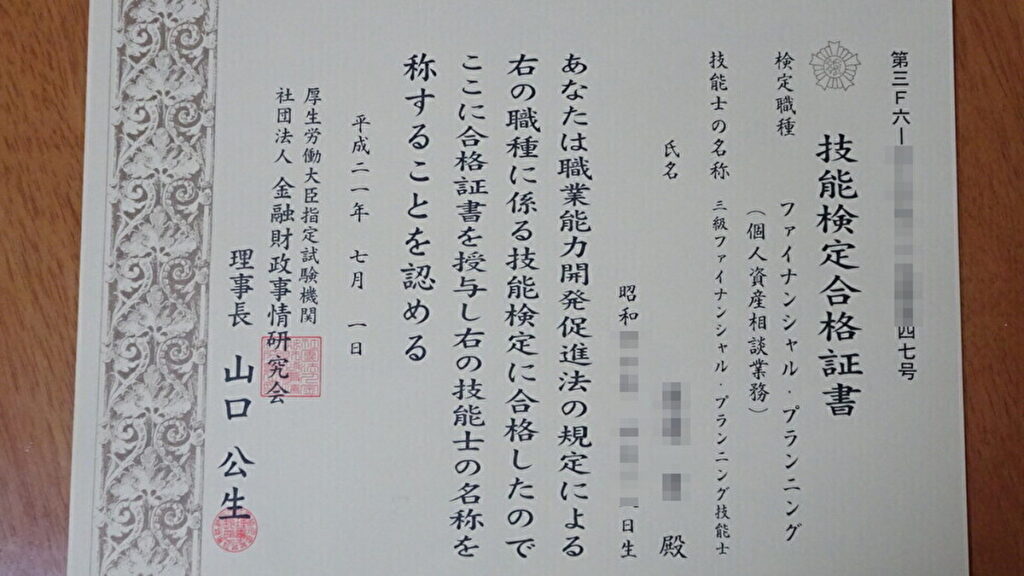 第三F六ー
四七号
技能検定合格証書
検定職種 ファイナンシャル・プランニング
(個人資産相談業務)
技能士の名称 三級ファイナンシャル・プランニング技能士
氏名 殿
昭和 日生
あなたは職業能力開発促進法の規定による
右の職種に係る技能検定に合格したので
ここに合格証書を授与し右の技能士の名称を
称することを認める
平成二一年 七月 一日
厚生労働大臣指定試験機関
社団法人 金融財政事情研究会
理事長 山口 公生